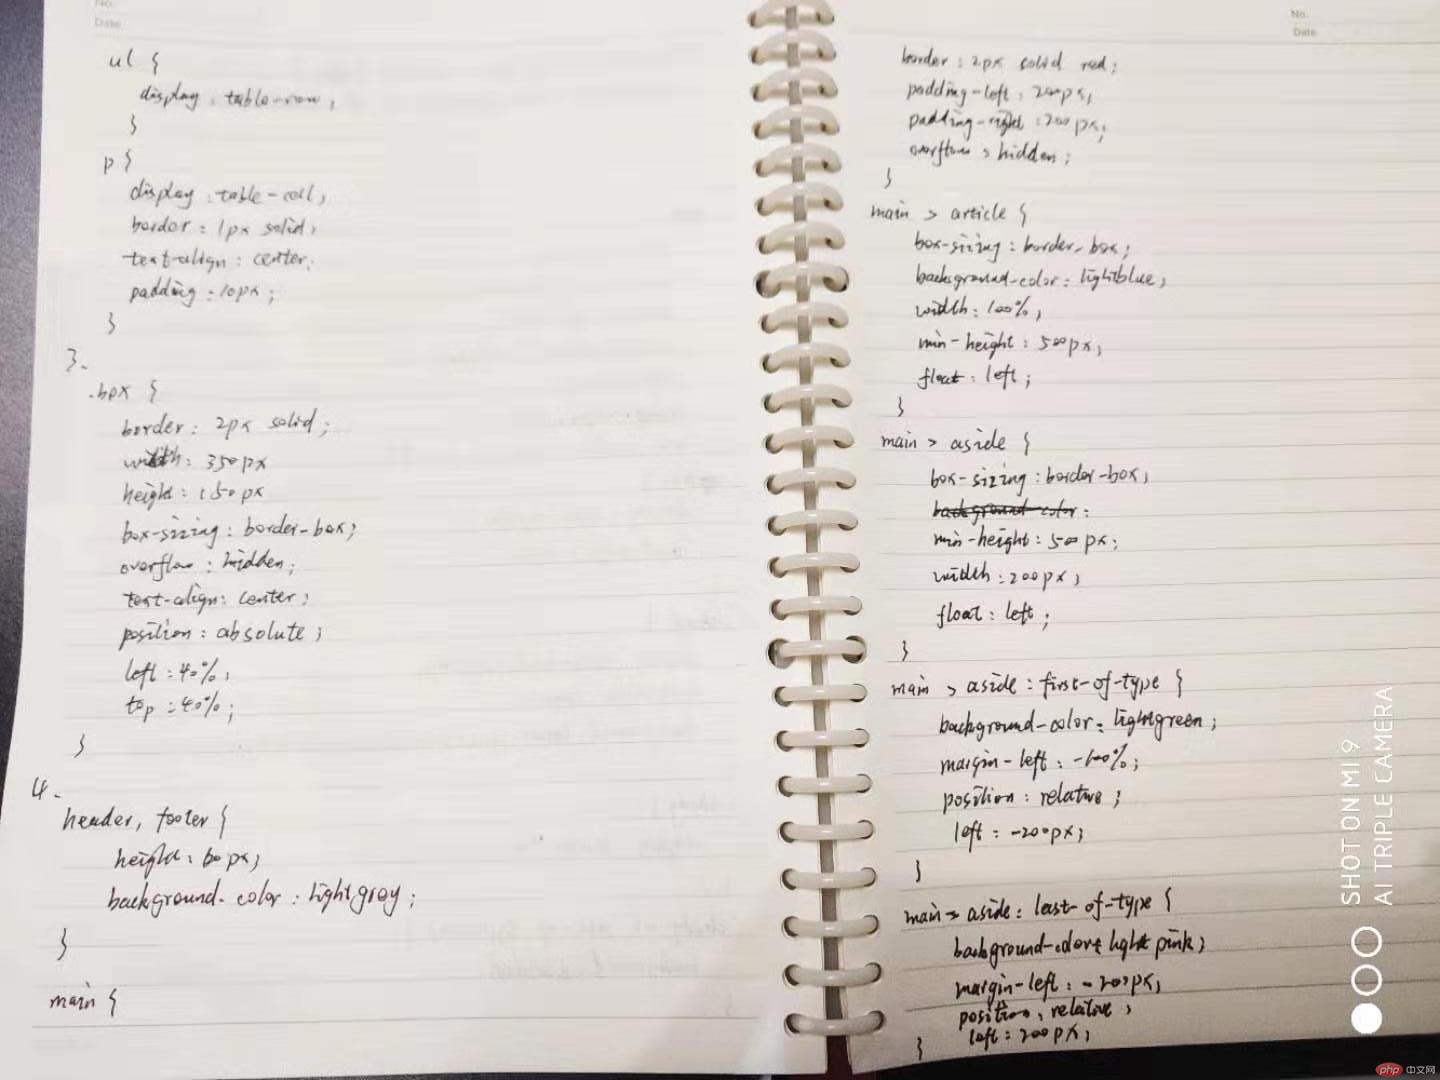 No.
Date
ul {
display : table-row ;
}
p {
display : table-cell ;
border : 1px solid ;
text-align : center ;
padding : 10px ;
}
3.
.box {
border : 2px solid ;
width : 350px
height : 150px
box-sizing : border-box ;
overflow : hidden ;
text-align : center ;
position : absolute ;
left : 40% ;
top : 40% ;
}
4.
header, footer {
height : 60px ;
background-color : lightgray ;
}
main {
No.
Date
border : 2px solid red ;
padding-left : 200px ;
padding-right : 200px ;
overflow : hidden ;
}
main > article {
box-sizing : border-box ;
background-color : lightblue ;
width : 100% ;
min-height : 500px ;
float : left ;
}
main > aside {
box-sizing : border-box ;
background-color :
min-height : 500px ;
width : 200px ;
float : left ;
}
main > aside : first-of-type {
background-color : lightgreen ;
margin-left : -100% ;
position : relative ;
left : -200px ;
}
main > aside : last-of-type {
background-color : lightpink ;
margin-left : -200px ;
position : relative ;
left : 200px ;
}
SHOT ON MI 9
AI TRIPLE CAMERA
php 中文网